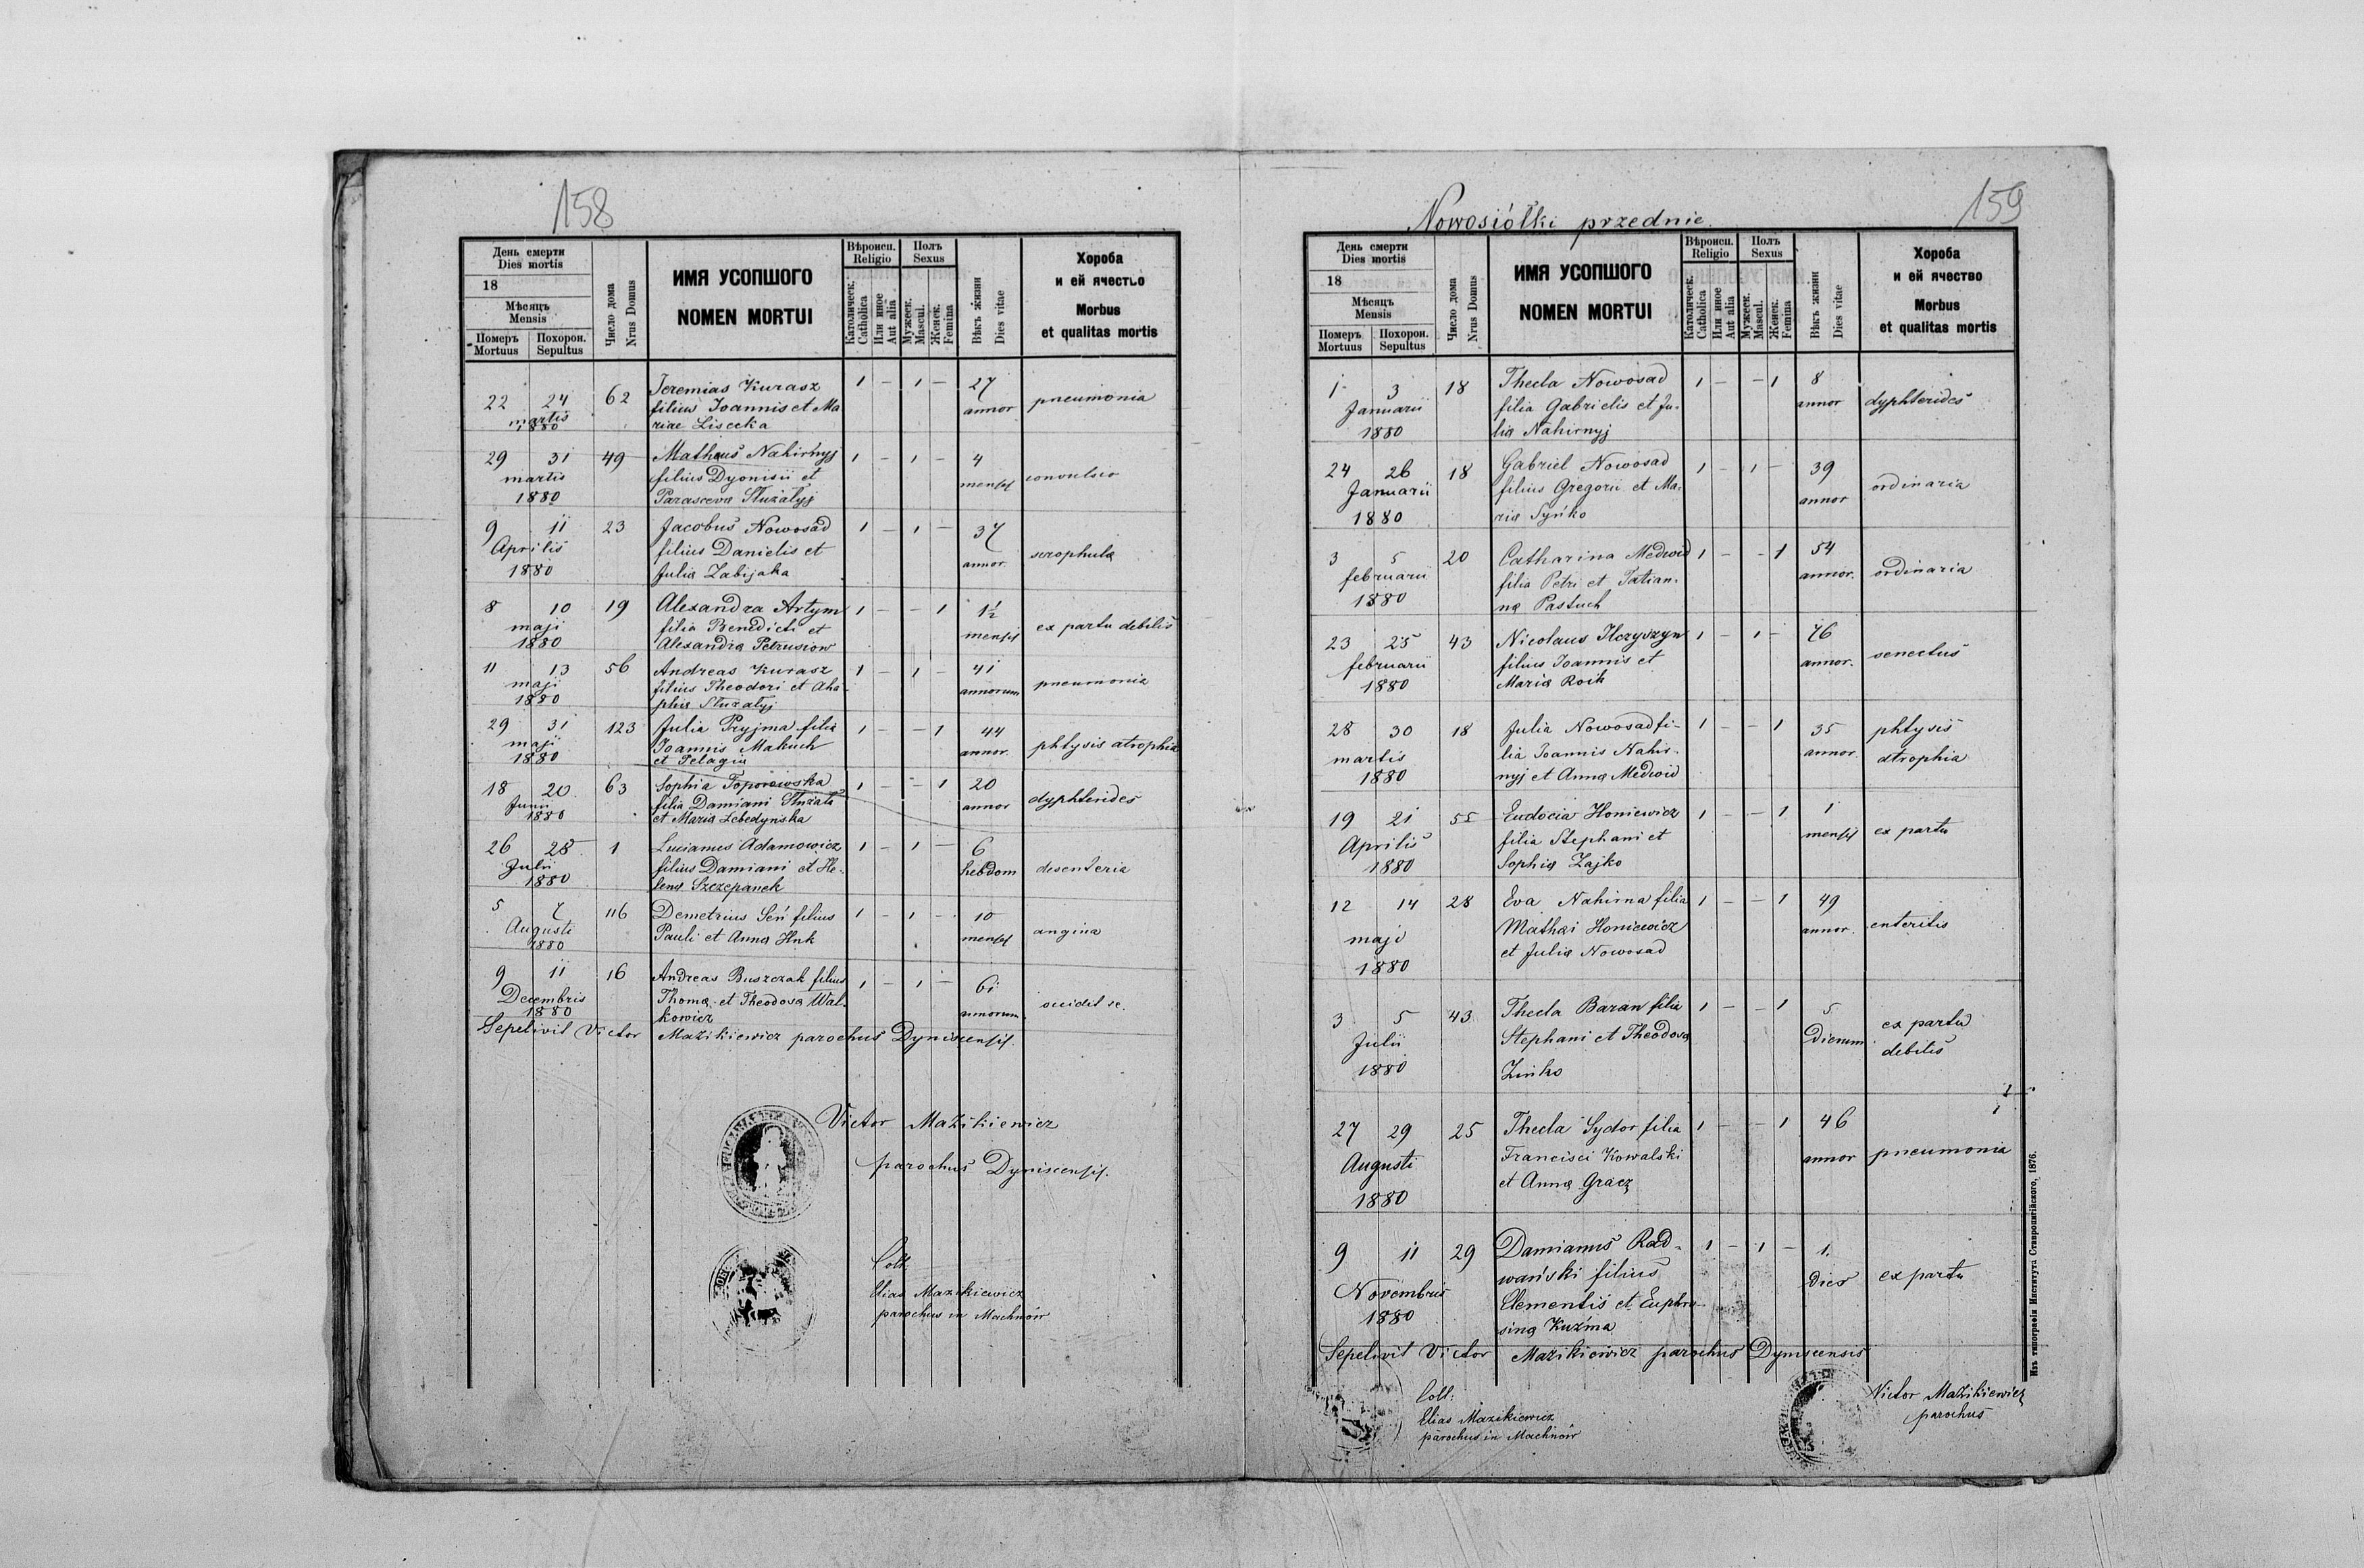 158
День смерти
Dies mortis
18
Мѣсяцъ
Mensis
Померъ
Mortuus
Похорон.
Sepultus
Число дома
Nrus Domus
ИМЯ УСОПШОГО
NOMEN MORTUI
Вѣроисп.
Religio
Католическ.
Catholica
Или иное
Aut alia
Полъ
Sexus
Мужеск.
Mascul.
Женск.
Femina
Вѣкъ жизни
Dies vitae
Хороба
и ей ячество
Morbus
et qualitas mortis
22 24 62 Jeremias Kurasz 1 – 1 – 27
martis filius Joannis et Ma annor pneumonia
1880 riae Lisecka
29 31 49 Matheus Nahirnyj 1 – 1 – 4
martis filius Dyonisii et mensis convulsio
1880 Parasceva Służałyj
9 11 23 Jacobus Nowosad 1 – 1 – 37
Aprilis filius Danielis et annor. scrophula
1880 Julia Zabijaka
8 10 19 Alexandra Artym 1 – – 1 1½
maji filia Benedicti et mensis ex partu debilis
1880 Alexandra Petrusiow
11 13 56 Andreas Kurasz 1 – 1 – 41
maji filius Theodori et Aha annorum pneumonia
1880 phia Służałyj
29 31 123 Julia Pryjma filia 1 – – 1 44
maji Joannis Makuch annor. phtysis atrophia
1880 et Pelagia
18 20 63 Sophia Toporowska 1 – – 1 20
Junii filia Damiani Służała annor dyphterides
1880 et Maria Lebedynska
26 28 1 Lucianus Adamowicz 1 – 1 – 6
Julii filius Damiani et He- hebdom desenteria
1880 lena Szczepanek
5 7 116 Demetrius Seń filius 1 – 1 – 10
Augusti Pauli et Anna Hnk mensis angina
1880
9 11 16 Andreas Buszczak filius 1 – 1 – 61
Decembris Thoma et Theodosa Wal- annorum occidit se.
1880 kowicz
Sepelivit Victor Mazikiewicz parochus Dyniscensis.
Victor Mazikiewicz
parochus Dyniscensis.
Coll:
Elias Mazikiewicz
parochus in Machnów
159
Nowosiółki przednie.
День смерти
Dies mortis
18
Мѣсяцъ
Mensis
Померъ
Mortuus
Похорон.
Sepultus
Число дома
Nrus Domus
ИМЯ УСОПШОГО
NOMEN MORTUI
Вѣроисп.
Religio
Католическ.
Catholica
Или иное
Aut alia
Полъ
Sexus
Мужеск.
Mascul.
Женск.
Femina
Вѣкъ жизни
Dies vitae
Хороба
и ей ячество
Morbus
et qualitas mortis
1 3 18 Thecla Nowosad 1 – – 1 8
Januarii filia Gabrielis et Ju- annor dyphterides
1880 lia Nahirnyj
24 26 18 Gabriel Nowosad 1 – 1 – 39
Januarii filius Gregorii et Ma- annor ordinaria
1880 ria Syńko
3 5 20 Catharina Medwid 1 – – 1 54
februarii filia Petri et Tatian- annor. ordinaria
1880 na Pastuch
23 25 43 Nicolaus Ilczyszyn 1 – 1 – 76
februarii filius Joannis et annor. senectus
1880 Maria Roik
28 30 18 Julia Nowosad fi- 1 – – 1 35 phtysis
martis lia Joannis Nahir- annor. atrophia
1880 nyj et Anna Medwid
19 21 55 Eudocia Honiewicz 1 – – 1 1
Aprilis filia Stephani et mensis ex partu
1880 Sophia Zajko
12 14 28 Eva Nahirna filia 1 – – 1 49
maji Mathei Honiewicz annor. enteritis
1880 et Julia Nowosad
3 5 43 Thecla Baran filia 1 – – 1 5 ex partu
Julii Stephani et Theodosa Dierum debilis
1880 Zinko
27 29 25 Thecla Sydor filia 1 – – 1 46
Augusti Francisci Kowalski annor pneumonia
1880 et Anna Gracz
9 11 29 Damianus Rad- 1 – 1 – 1.
Novembris wański filius Dies ex partu
1880 Clementis et Euphro
sina Kuźma
Sepelivit Victor Mazikiewicz parochus Dyniscensis
Coll:
Elias Mazikiewicz
parochus in Machnów
Victor Mazikiewicz
parochus
Изъ типографіи Института Ставропигійского, 1876.